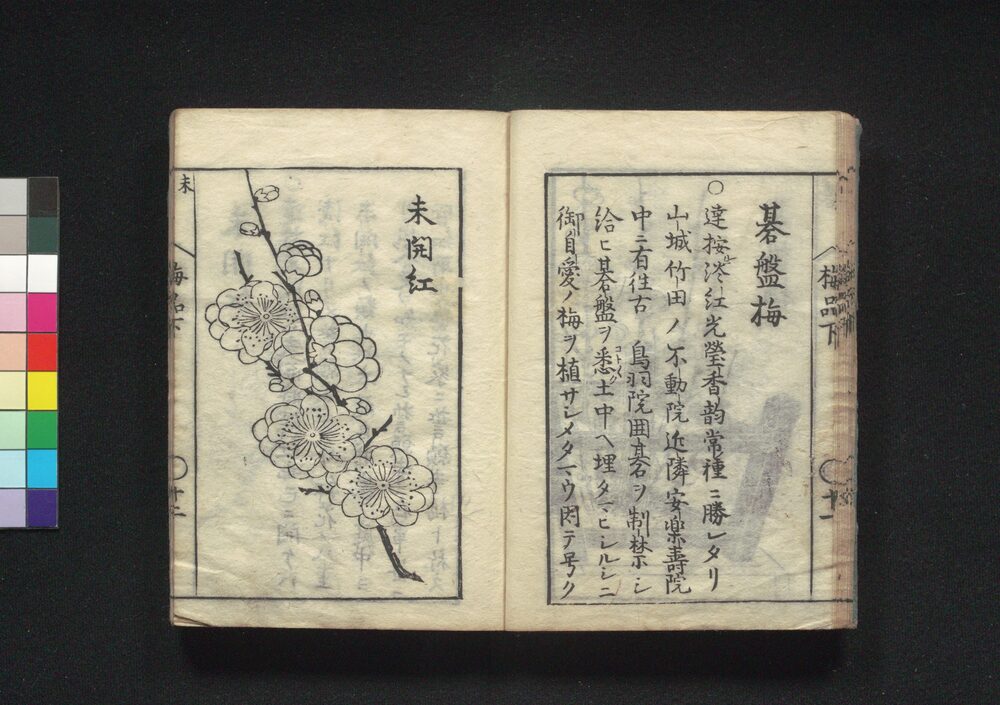 碁盤梅
○達按淡紅光瑩香韵常種ニ勝レタリ
山城竹田ノ不動院近隣安楽壽院
中ニ有往古 鳥羽院囲碁ヲ制禁シ
給ヒ碁盤ヲ悉土中ヘ埋タマヒシルシニ
御自愛ノ梅ヲ植サシメタマウ因テ号ク
梅品下
十一
未開紅
未
梅品下
十二